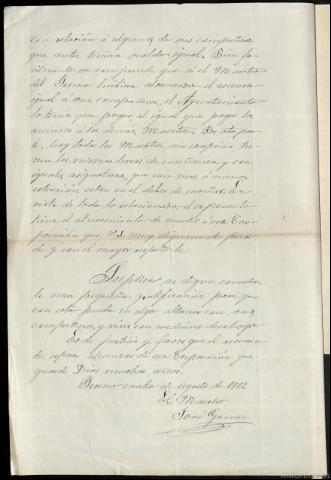 con relación á algunos de sus compañeros
que antes tenian sueldo igual. Bien fa-
cilmente se comprende que si el Maestro
del Benno hubiera alcanzado el ascenso
igual á sus compañeros, el Ayuntamiento
lo tenia que pagar al igual que paga los
ascensos á los demas Maestros. Por otra par-
te, hoy todos los Maestros, sin excepción tie-
nen las mismas horas de enseñanza y con
iguales asignaturas, que con mas ó menos
extensión estan en el deber de enseñar. En
vista de todo lo relacionado, el exponente
tiene el atrevimiento de acudir á esa Cor-
poración que V.S. muy dignamente presi-
de y con el mayor respeto le
Suplica se digne conceder
le una pequeña gratificación para que
con esto pueda en algo alternar con sus
compañeros y vivir con mediano desahogo
Es de justicia y favor que el recurren-
te espera alcanzar de esa Corporación que
guarde Dios muchos años.
Benno cuatro de Agosto de 1912
El Maestro
José Gomez